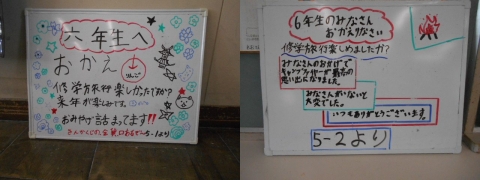 六年生へ
おかえり
修学旅行楽しかったですか?
来年が楽しみです。
おみやげ話まってます!!
5-1より
6年生のみなさん
おかえりなさい
修学旅行楽しめましたか?
みなさんのおかげで
キャンプファイヤーが最高の
思い出になりました。
みなさんがいないと
大変でした。
いつもありがとうございます。
5-2より